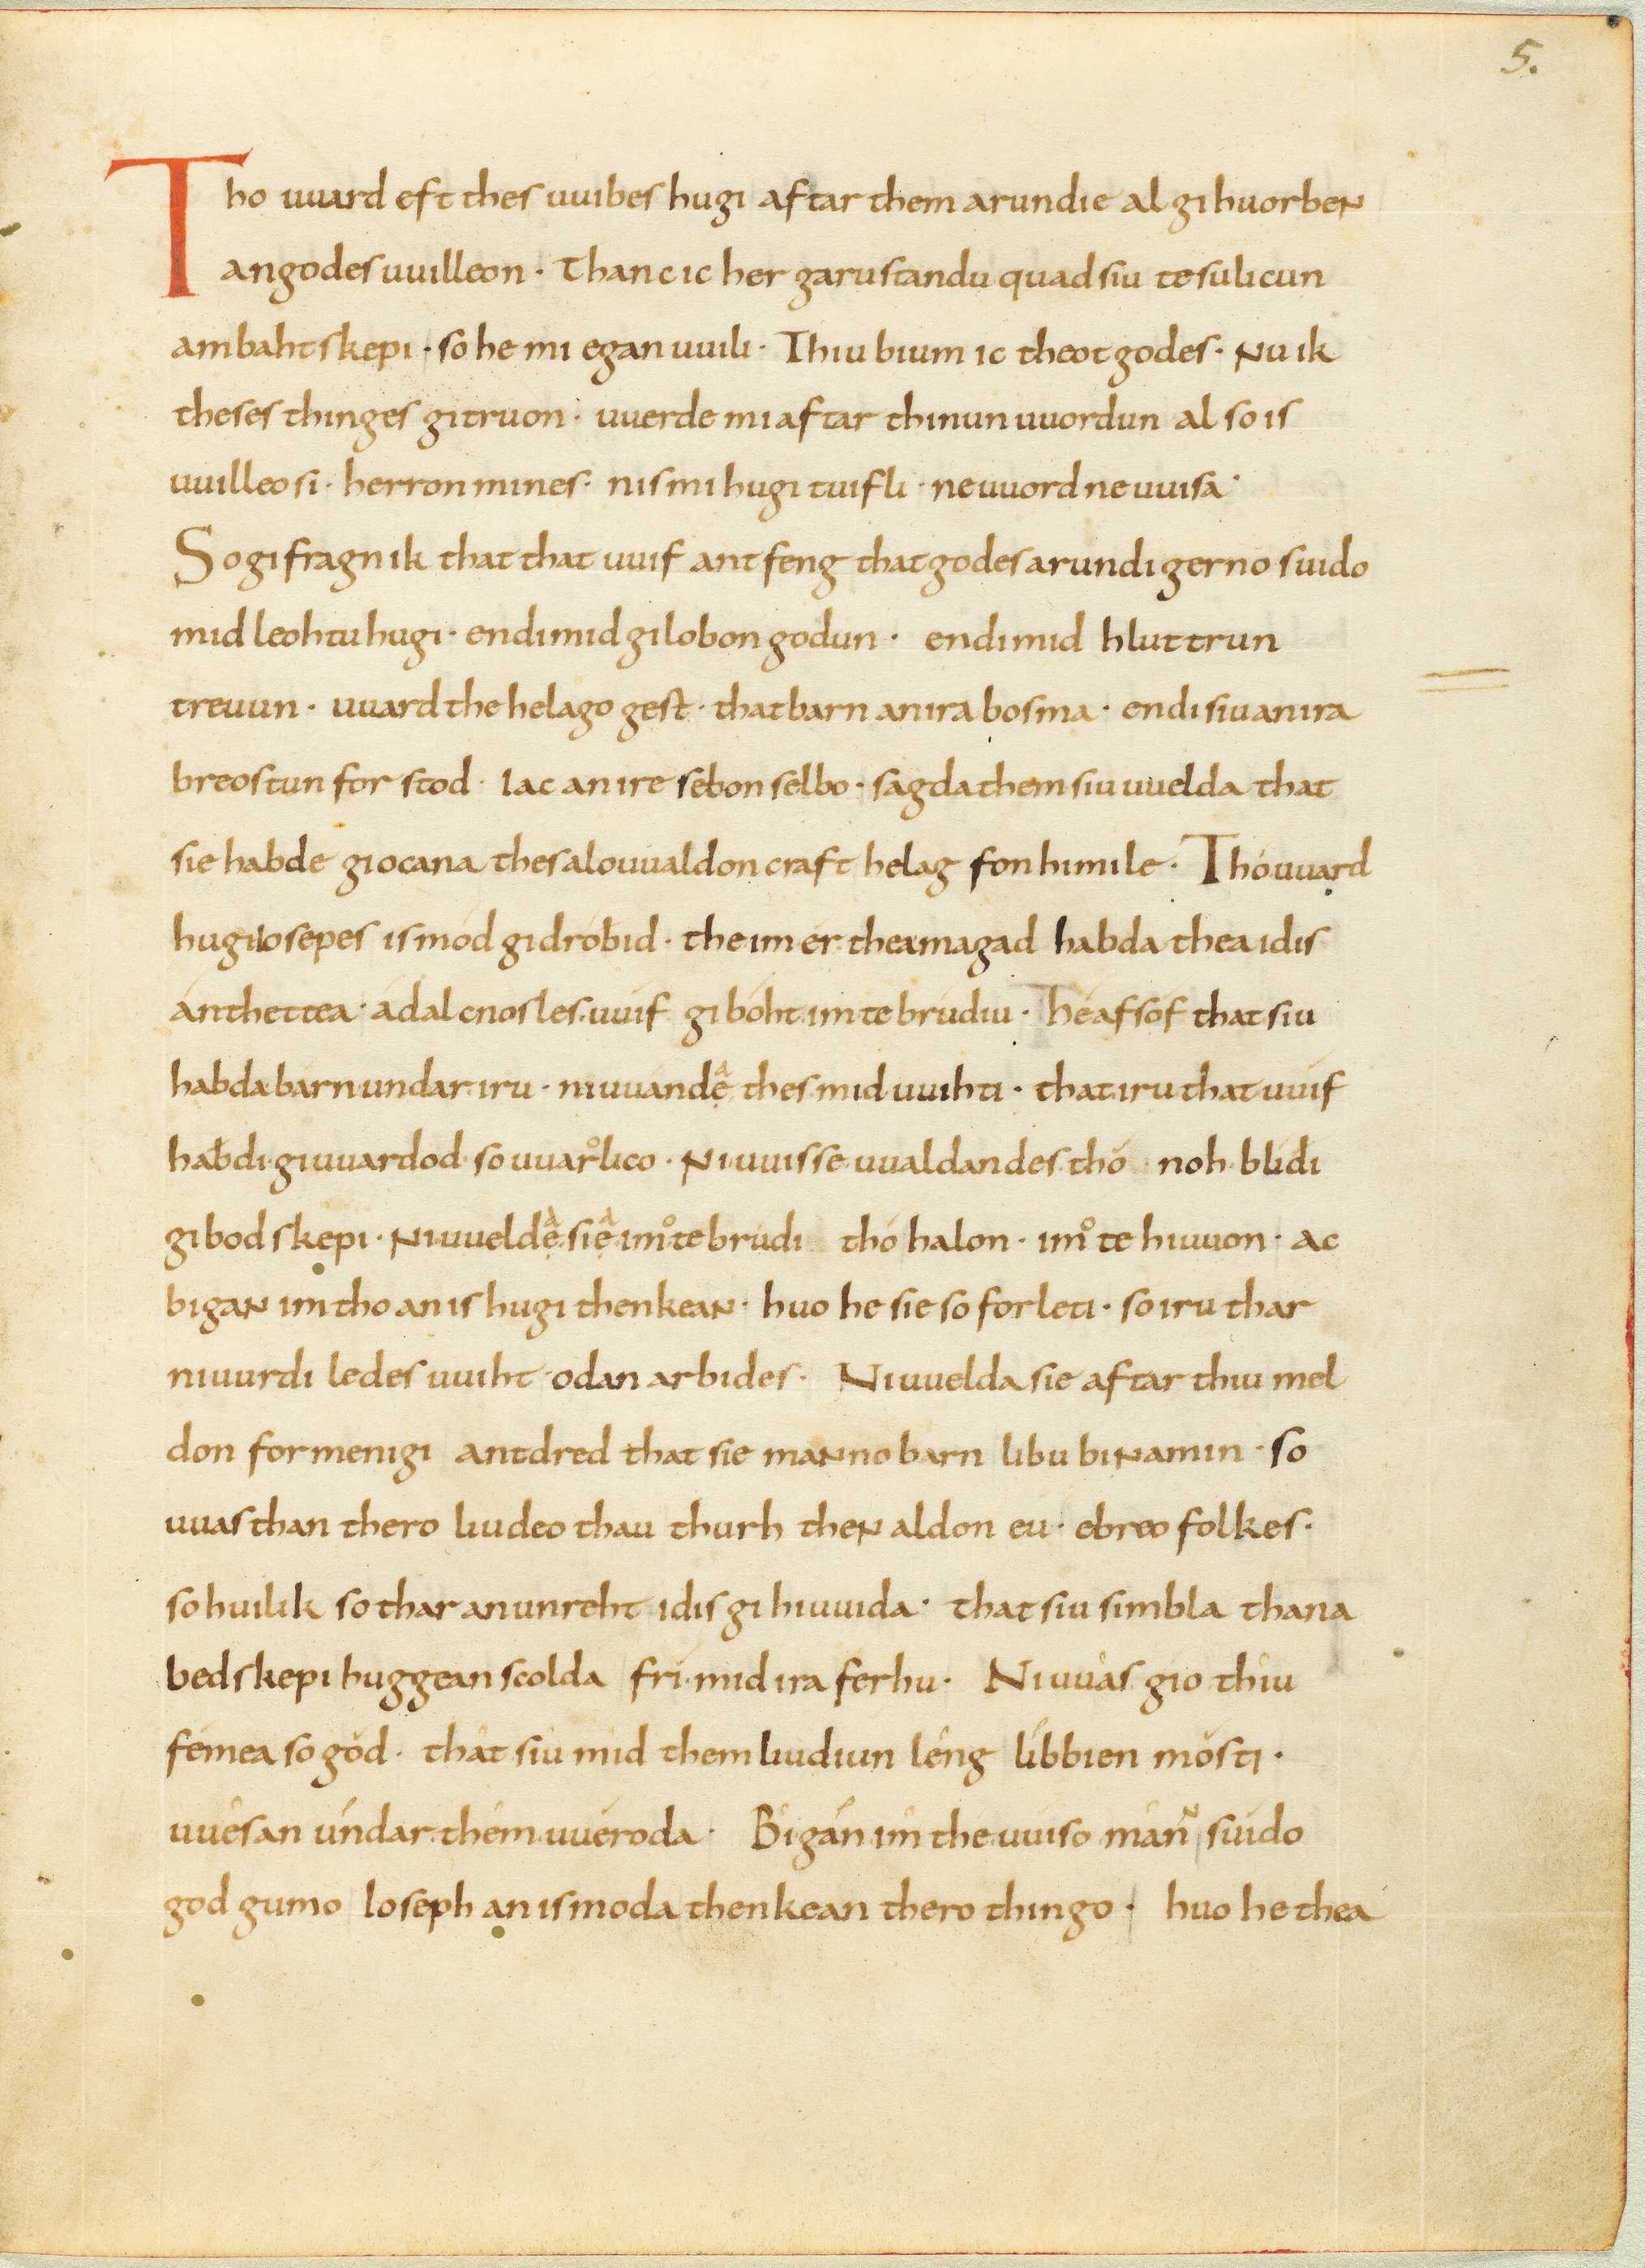 5.
Tho uuard eft thes uuibes hugi aftar them arundie al gihuorben
an godes uuilleon · Thanc ic her garu standu quad siu te sulicun
ambahtskepi · so he mi egan uuili · Thiu bium ic theotgodes · Nu ik
theses thinges gitruon · uuerde mi aftar thinun uuordun al so is
uuilleo si · herron mines · nis mi hugi tuifli · ne uuord ne uuisa ·
So gifragn ik that that uuif antfeng that godes arundi gerno suido
mid leohtu hugi · endi mid gilobon godun · endi mid hluttrun
treuun · uuard the helago gest · that barn an ira bosma · endi siu an ira
breostun forstod · Iac an ire sebon selbo · sagda them siu uuelda that
sie habde giocana thes alouualdon craft helag fon himile · Thó uuard
hugi Iosepes is mód gidróbid · the im ér thea magad habda thea idis
ánthettea · ádalcnosles uuíf gibóht im te brúdiu · hé áfsóf that siu
habda barn undar iru · ni uuánde᷵ᵃ thes mid uuihti · that iru that uuif
habdi giuuardod so uuarºlico · Ni uuisse uualdandes thó noh blídi
gibodskepi · Ni uueldeᵃ sieᵃ imº te brúdi thó halon · imº te hiuuon · ac
bigan im tho an is hugi thenkean · huo he sie so forleti · so iru thar
ni uurdi ledes uuiht odan arbides · Ni uuelda sie aftar thiu mel
don for menigi antdred that sie manno barn libu binamin · so
uuas than thero liudeo thau thurh then aldon eu · ebreo folkes ·
so huilik so thar an unreht idis gihiuuida · that siu simbla thana
bedskepi buggean scolda frí mid ira ferhu · Ni uuás gio thiu
fémea so gód · thát siu mid them liudiun léng líbbien mósti ·
uuésan úndar them uuéroda · Bigán im the uuiso mánn suído
god gumo Ioseph an is moda thenkean thero thingo · huo he thea